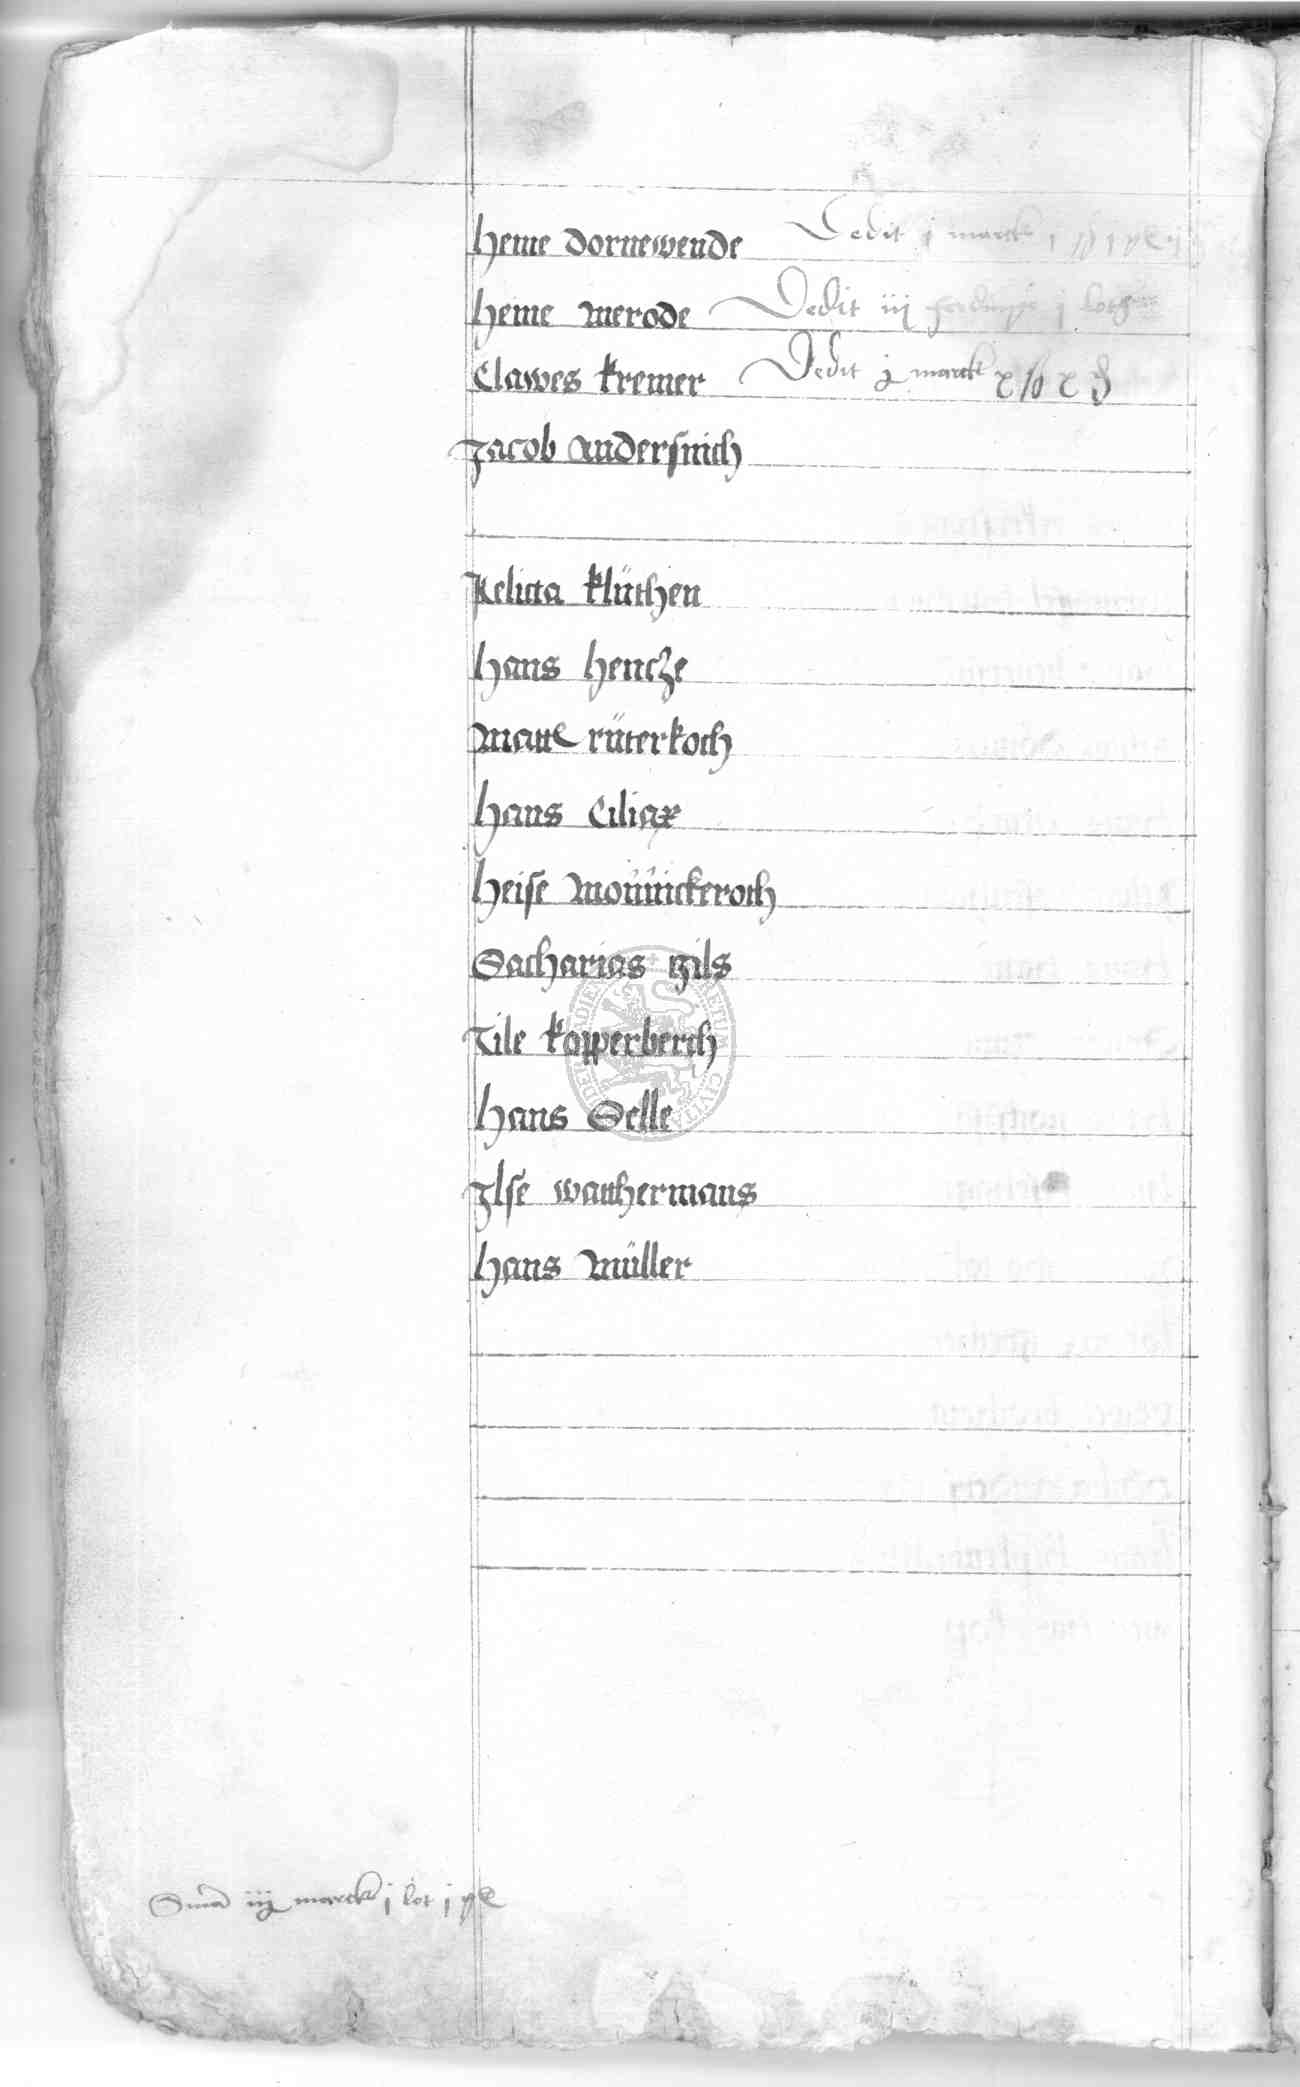 heine dornewende Dedit j marck
heine merode Dedit iij ferdinge j loth
Clawes kremer Dedit j marck x ß x ₰
Jacob andersnich
Relicta klüthen
hans hencze
Matt rüterkoch
hans Ciliax
heise Mönnickeroch
Sacharias gils
Tile kopperberch
hans Selle
Ilse watthermans
hans Müller
Sma iij marck j lot j